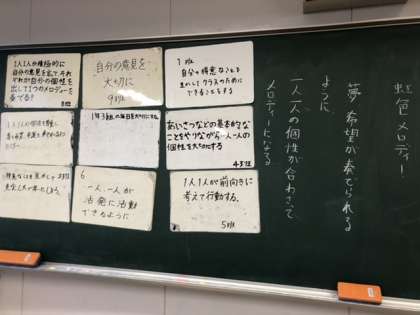 虹色メロディー!
夢 希望が奏でられる
ように
一人一人の個性が合わさって
メロディーになる
1人1人が積極的に
自分の意見を出して、それ
ぞれが自分の個性を
出して1つのメロディーを
奏でる?
8班
自分の意見を
大切に
9班
1班
自分の得意なことを
生かしてクラスのために
できることをする
あいさつなどの基本的な
ことをやりながら一人一人の
個性を大切にする
6
一人一人が
活発に活動
できるように
1人1人が前向きに
考えて行動する。
5班